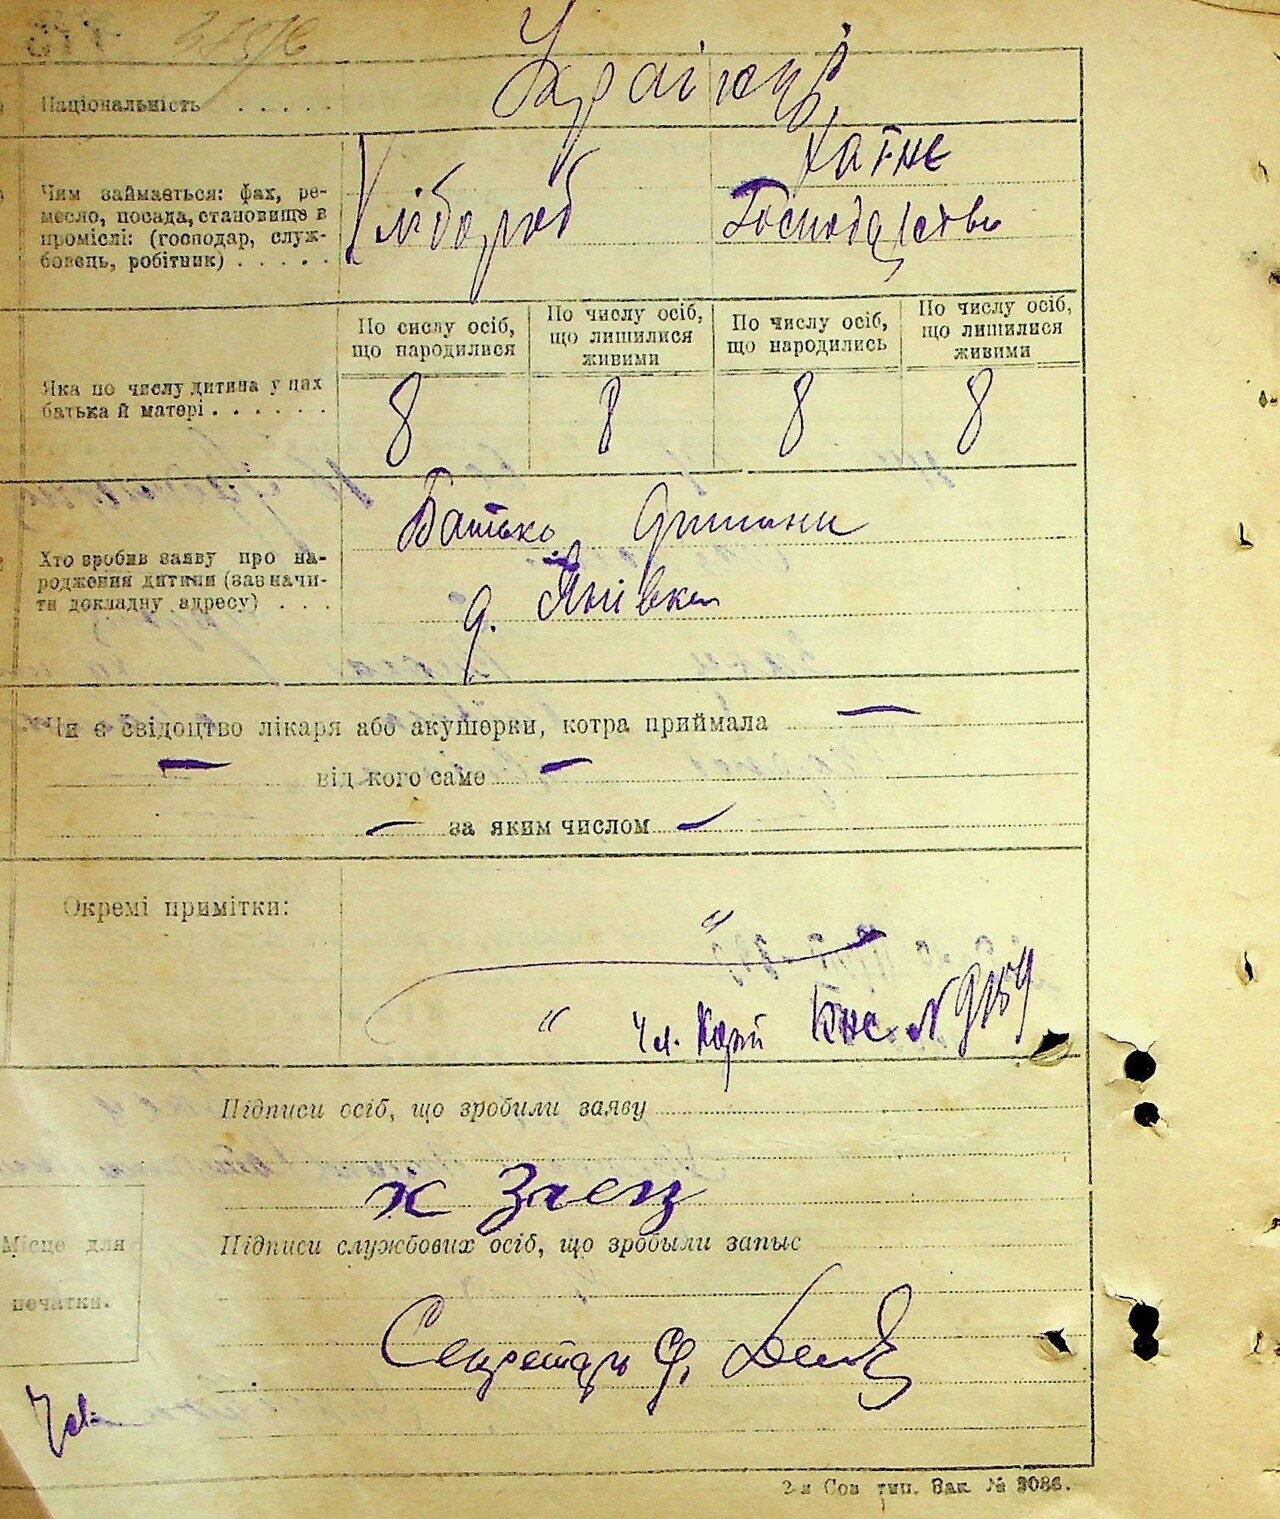 Українці
Національність . . . . .
Чим займається: фах, ре-
месло, посада, становище в
промислі: (господар, служ-
бовець, робітник) . . . . .
Хлібороб
Хатнє
Господарство
По сислу осіб,
що народилися
По числу осіб,
що лишилися
живими
По числу осіб,
що народились
По числу осіб,
що лишилися
живими
Яка по числу дитина у цих
батька й матері . . . . . .
8 8 8 8
Хто зробив заяву про на-
родження дитини (зазначи-
ти докладну адресу) . . .
Батько дитини
д. Янівка
Чи є свідоцтво лікаря або акушерки, котра приймала —
— від кого саме —
— за яким числом —
Окремі примітки:
"
"
Підписи осіб, що зробили заяву
Підписи службових осіб, що зробыли запыс
Місце для
печатки.
Секретарь
2-я Сов тип. Зак. № 3086.